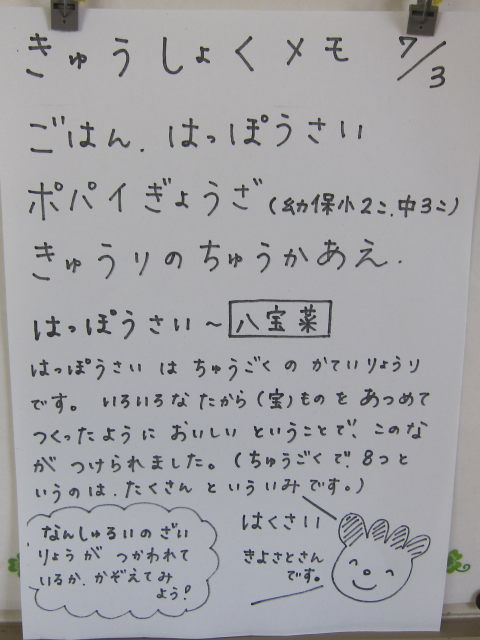 きゅうしょくメモ 7/3
ごはん.はっぽうさい
ポパイぎょうざ(幼保小2コ.中3コ)
きゅうりのちゅうかあえ.
はっぽうさい~八宝菜
はっぽうさい は ちゅうごく の かていりょうり
です。 いろいろな たから(宝)もの を あつめて
つくったように おいしい ということで、このな
が つけられました。(ちゅうごくで、8つと
いうのは.たくさん と いういみです。)
なんしゅるいの ざい
りょうが つかわれて
いるか.かぞえてみ
よう!
はくさい
きよさとさん
です。